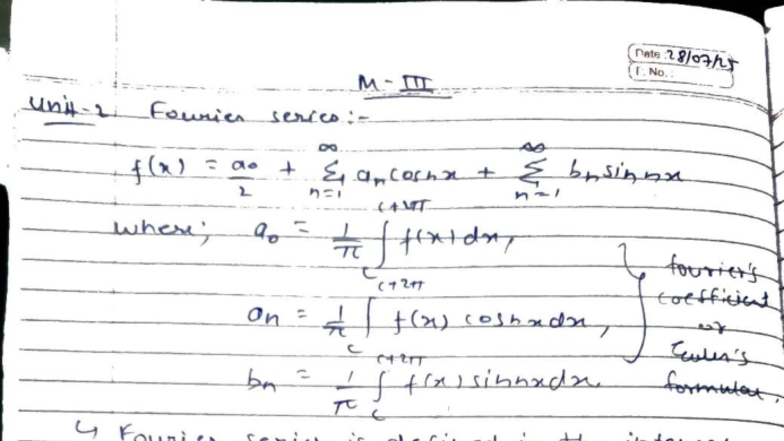 Date: 28/07/25
P. No.:
M-III
Unit-2 Fourier series:-
f(x) = a₀/2 + ∞Σn=1 aₙ cosnx + ∞Σn=1 bₙ sin nx
where; a₀ = 1/π ∫_c^{c+2π} f(x) dx,
aₙ = 1/π ∫_c^{c+2π} f(x) cosnx dx,
bₙ = 1/π ∫_c^{c+2π} f(x) sinnx dx.
fourier's
coefficient
or
Euler's
formulae.
↳ Fourier series is defined in the